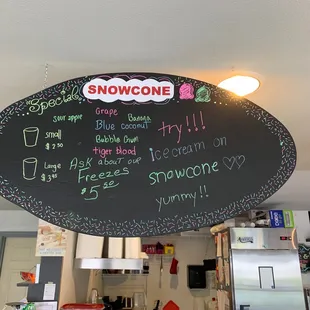 "Special
SNOWCONE
sour apple
Grape
Banana
Blue coconut
Bubble Gum
tiger blood
small
$2.50
Large
Ask about our
Freezes
$5.50
try!!!
icecream on
snowcone
yummy!!